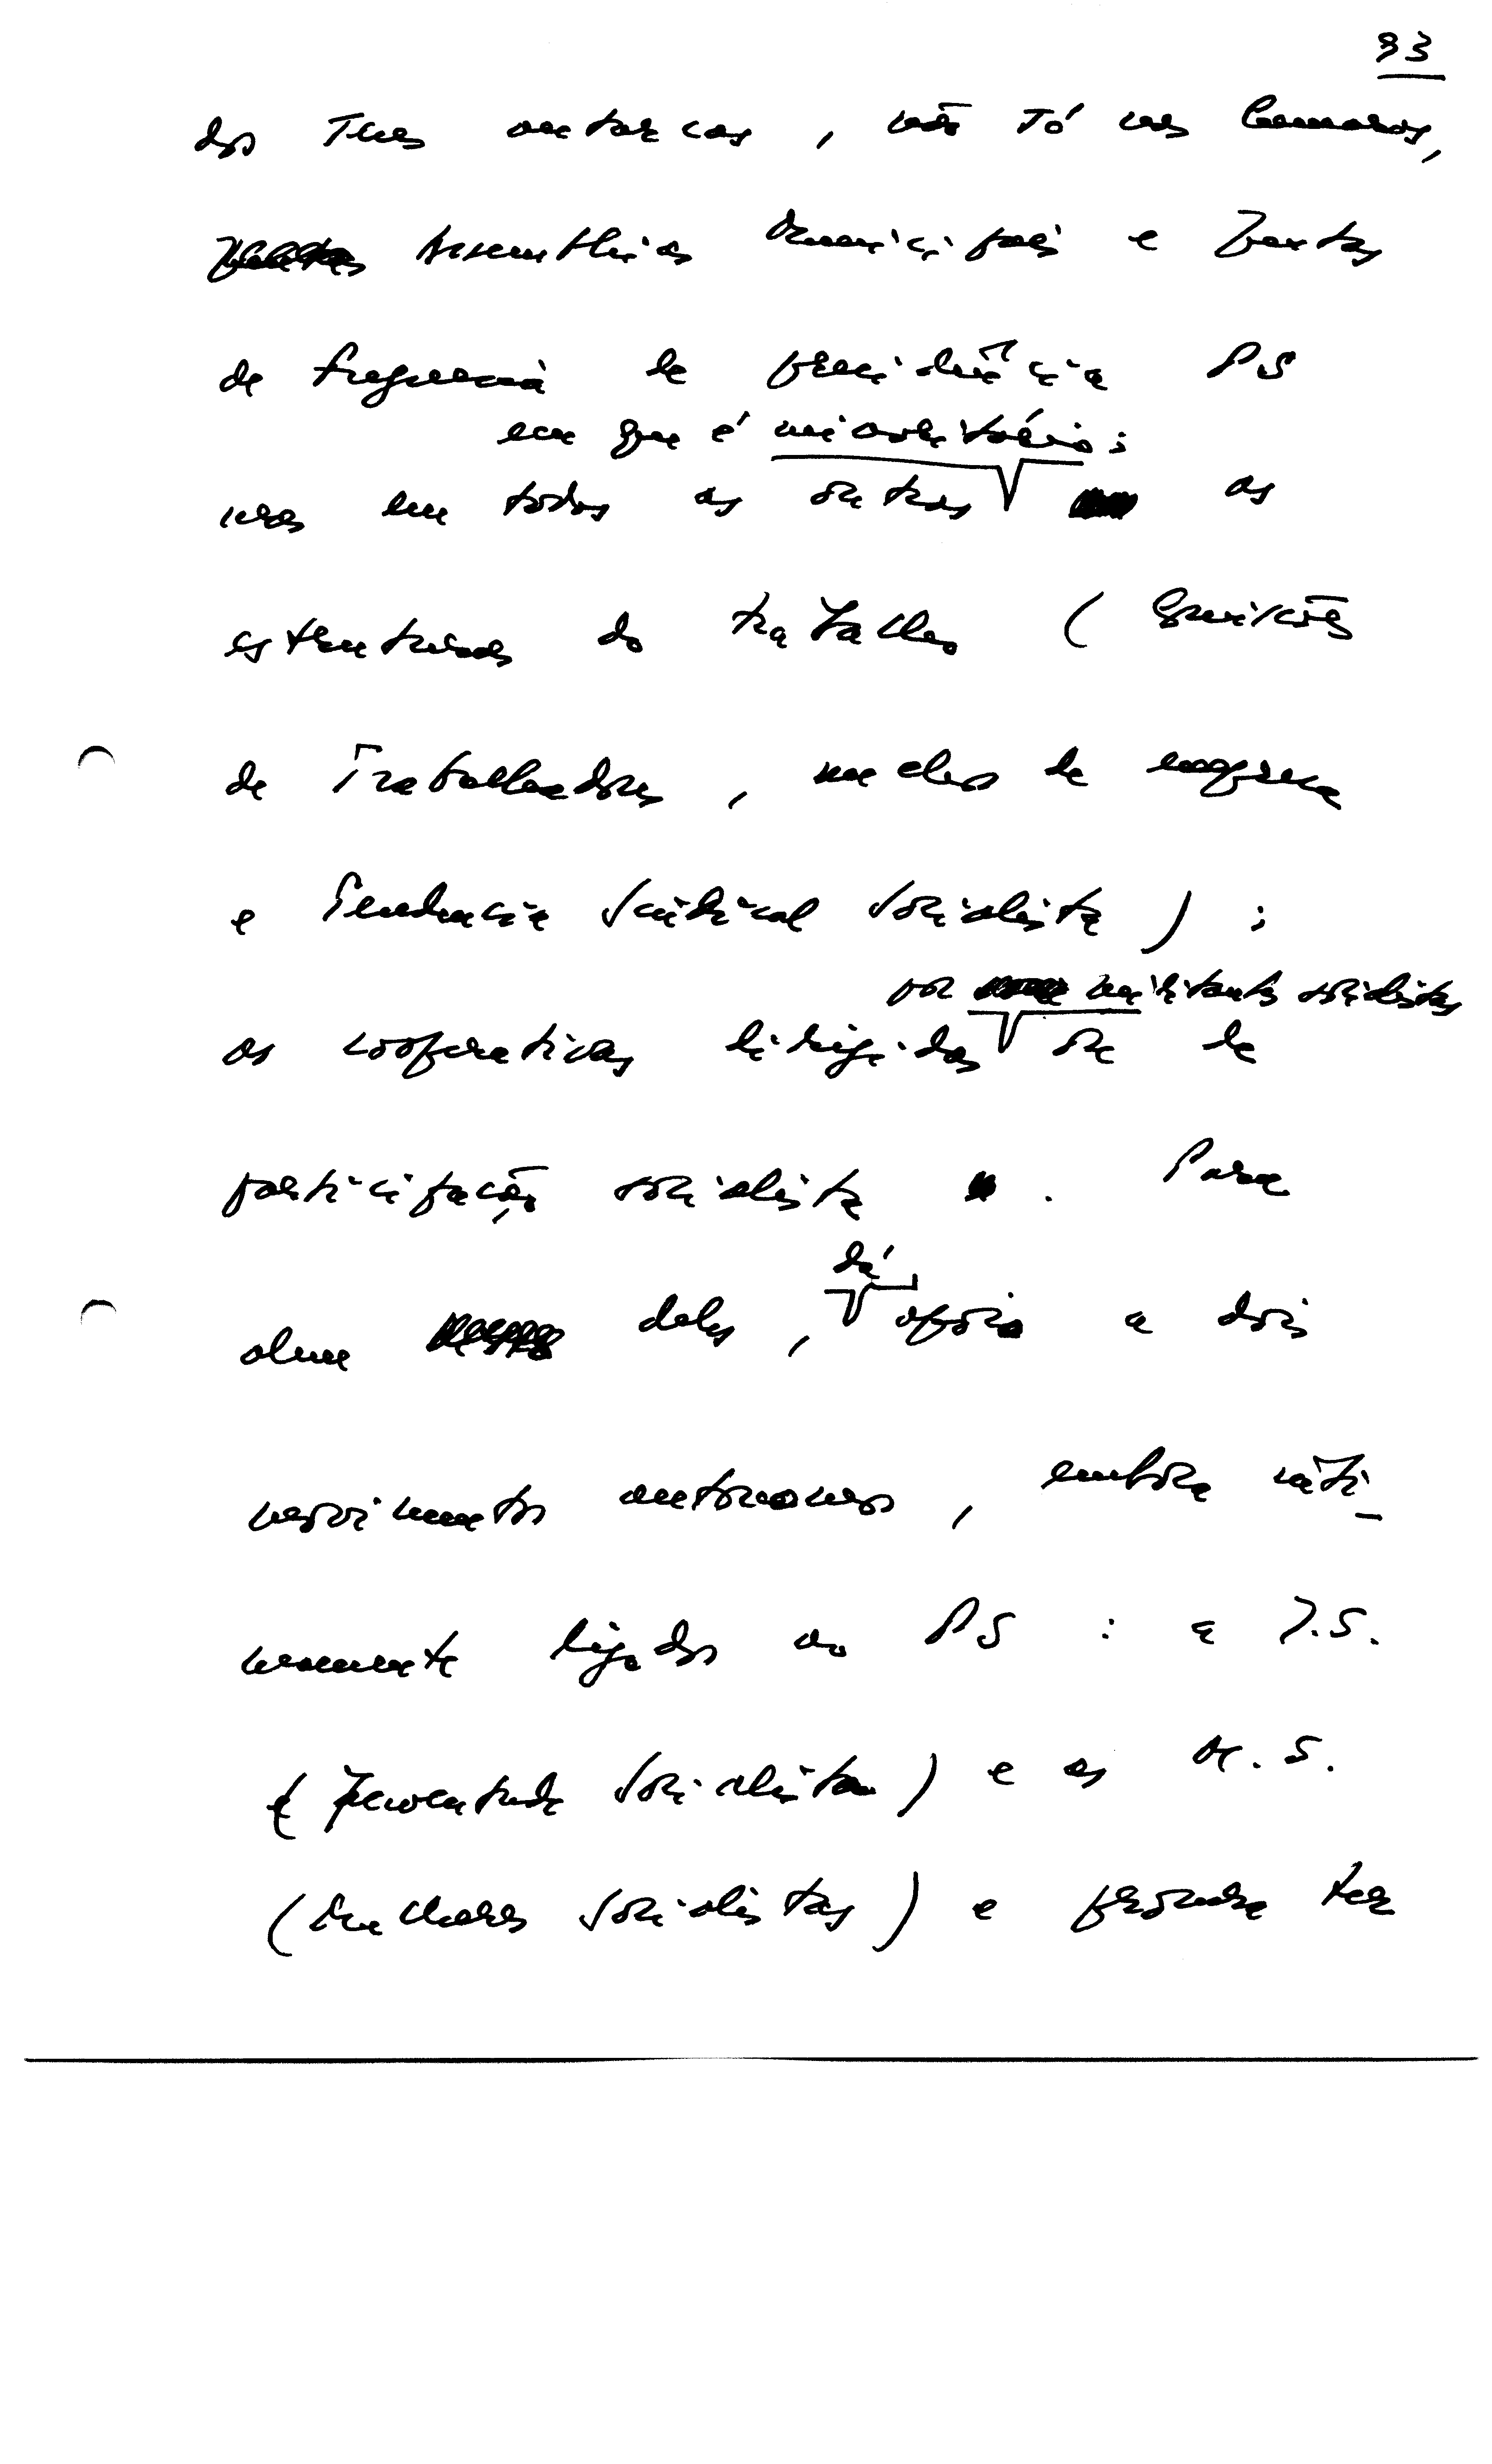 93
dos seus autarcas, não só nas Câmaras,
Assembleias Municipais e Juntas
de Freguesia de presidência PS
em que é minoritário;
mas em todas as outras as
estruturas do trabalho (Comissões
de Trabalhadores, nucleos de empresa
e Tendencia Sindical Socialista);
por militantes socialistas
as cooperativas dirigidas ou de
participação socialista. Para
alem deles, dá apoio a dois
movimentos autonomos, embora inti-
mamente ligados ao PS: a J.S.
(Juventude Socialista) e as M.S.
(Mulheres Socialistas) e procura ter